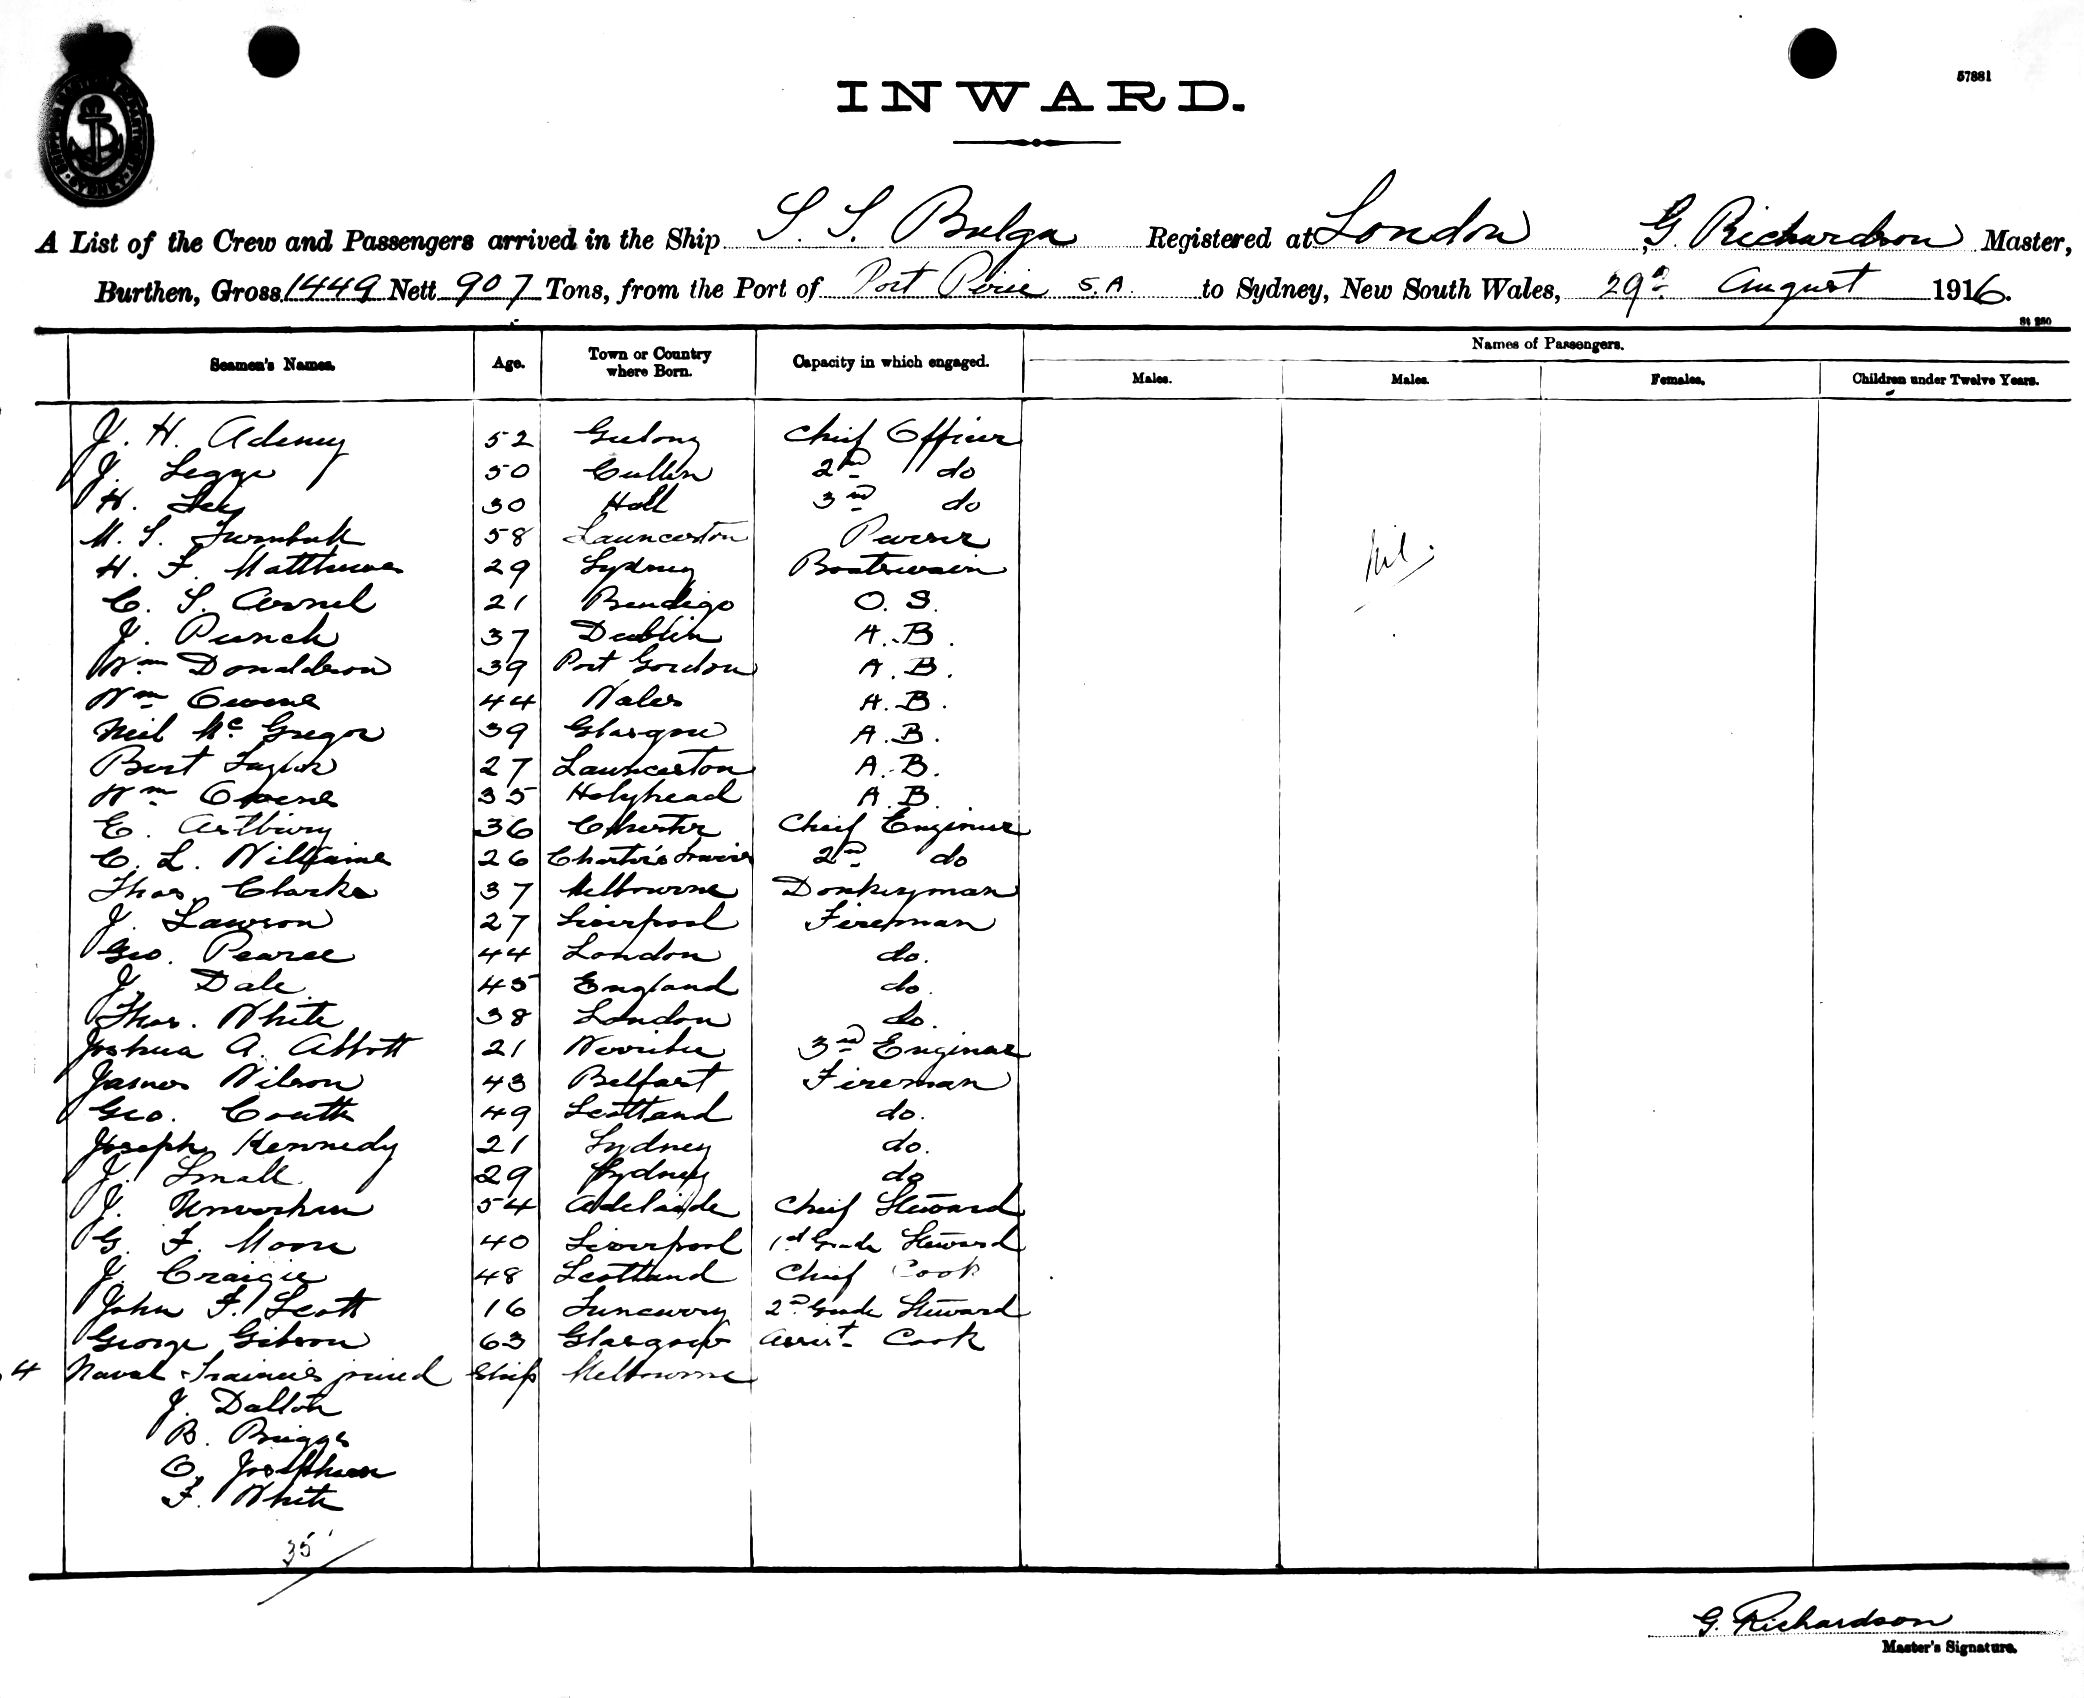 57881
INWARD.
A List of the Crew and Passengers arrived in the Ship S. S. Bulga Registered at London G. Richardson Master,
Burthen, Gross 1449 Nett 907 Tons, from the Port of Port Pirie S.A. to Sydney, New South Wales, 29th August 1916.
St 250
Seamen's Names. Age. Town or Country where Born. Capacity in which engaged. Names of Passengers.
Males. Males. Females. Children under Twelve Years.
J. H. Adeney 52 Geelong Chief Officer
J. Legge 50 Cullen 2nd do
H. 30 Hull 3rd do
M. S. Turnbull 58 Launceston Purser
Nil.
H. F. Matthews 29 Sydney Boatswain
C. S. Arnel 21 Bendigo O. S.
J. Punch 37 Dublin A. B.
Wm Donaldson 39 Port Gordon A. B.
Wm Owens 44 Wales A. B.
Neil McGregor 39 Glasgow A. B.
Bert Taylor 27 Launceston A. B.
Wm Owens 35 Holyhead A. B.
E. Astbury 36 Chester Chief Engineer
C. L. Williams 26 Charters Towers 2nd do
Thos. Clarke 37 Melbourne Donkeyman
J. Lawson 27 Liverpool Fireman
Geo. Pearce 44 London do.
J. Dale 45 England do.
Thos. White 38 London do.
Joshua A. Abbott 21 Werribee 3rd Engineer
James Wilson 43 Belfast Fireman
Geo. Coutts 49 Scotland do.
Joseph Kennedy 21 Sydney do.
J. Small 29 Sydney do
J. 54 Adelaide Chief Steward
G. F. Moore 40 Liverpool 1st Grade Steward
J. Craigie 48 Scotland Chief Cook
John F. Scott 16 Tuncurry 2nd Grade Steward
George Gibson 63 Glasgow Assist. Cook
4 Naval Trainees joined Ship Melbourne
J. Dalton
B. Briggs
O. Josephson
F. White
35
G. Richardson
Master's Signature.